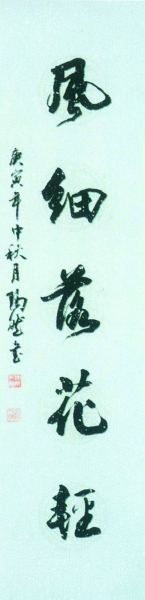 風細落花輕
庚寅年中秋月